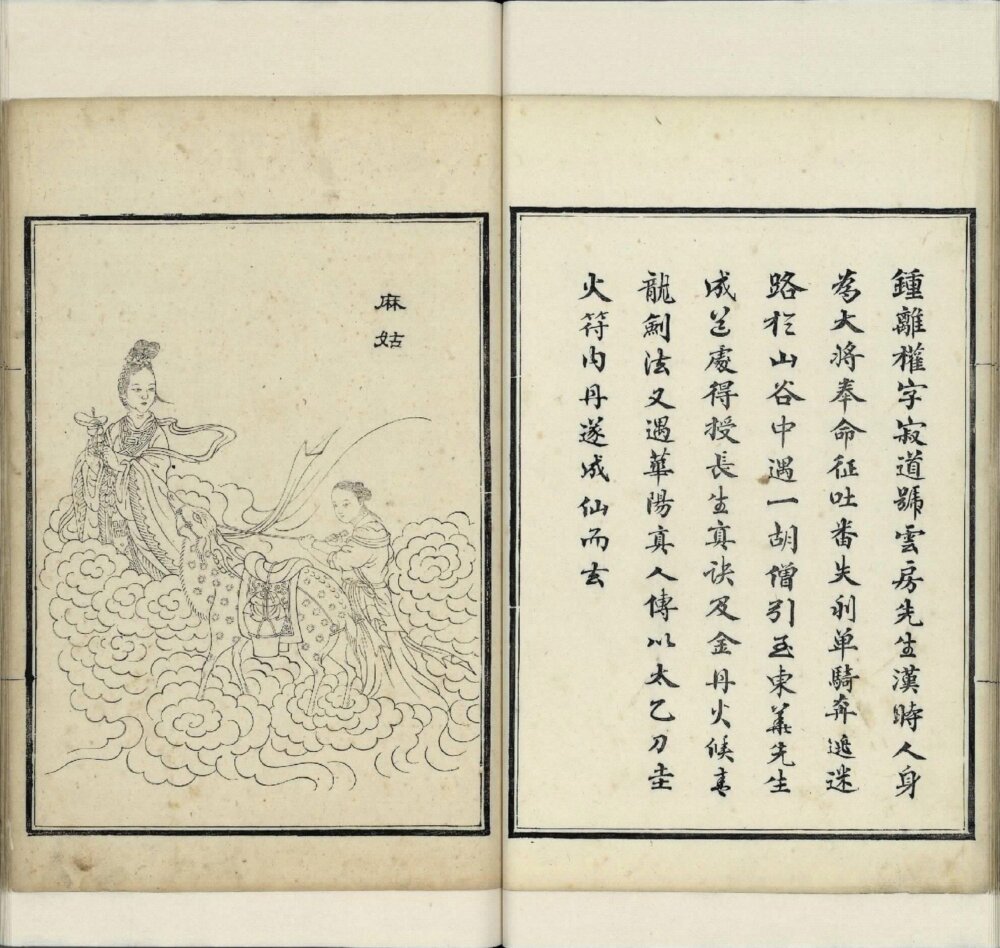 鍾離權字寂道號雲房先生漢時人身
為大將奉命征吐番失利单騎奔逃迷
路於山谷中遇一胡僧引至東華先生
成道處得授長生真訣及金丹火候青
龍劍法又遇華陽真人傳以太乙刀圭
火符内丹遂成仙而去
麻姑